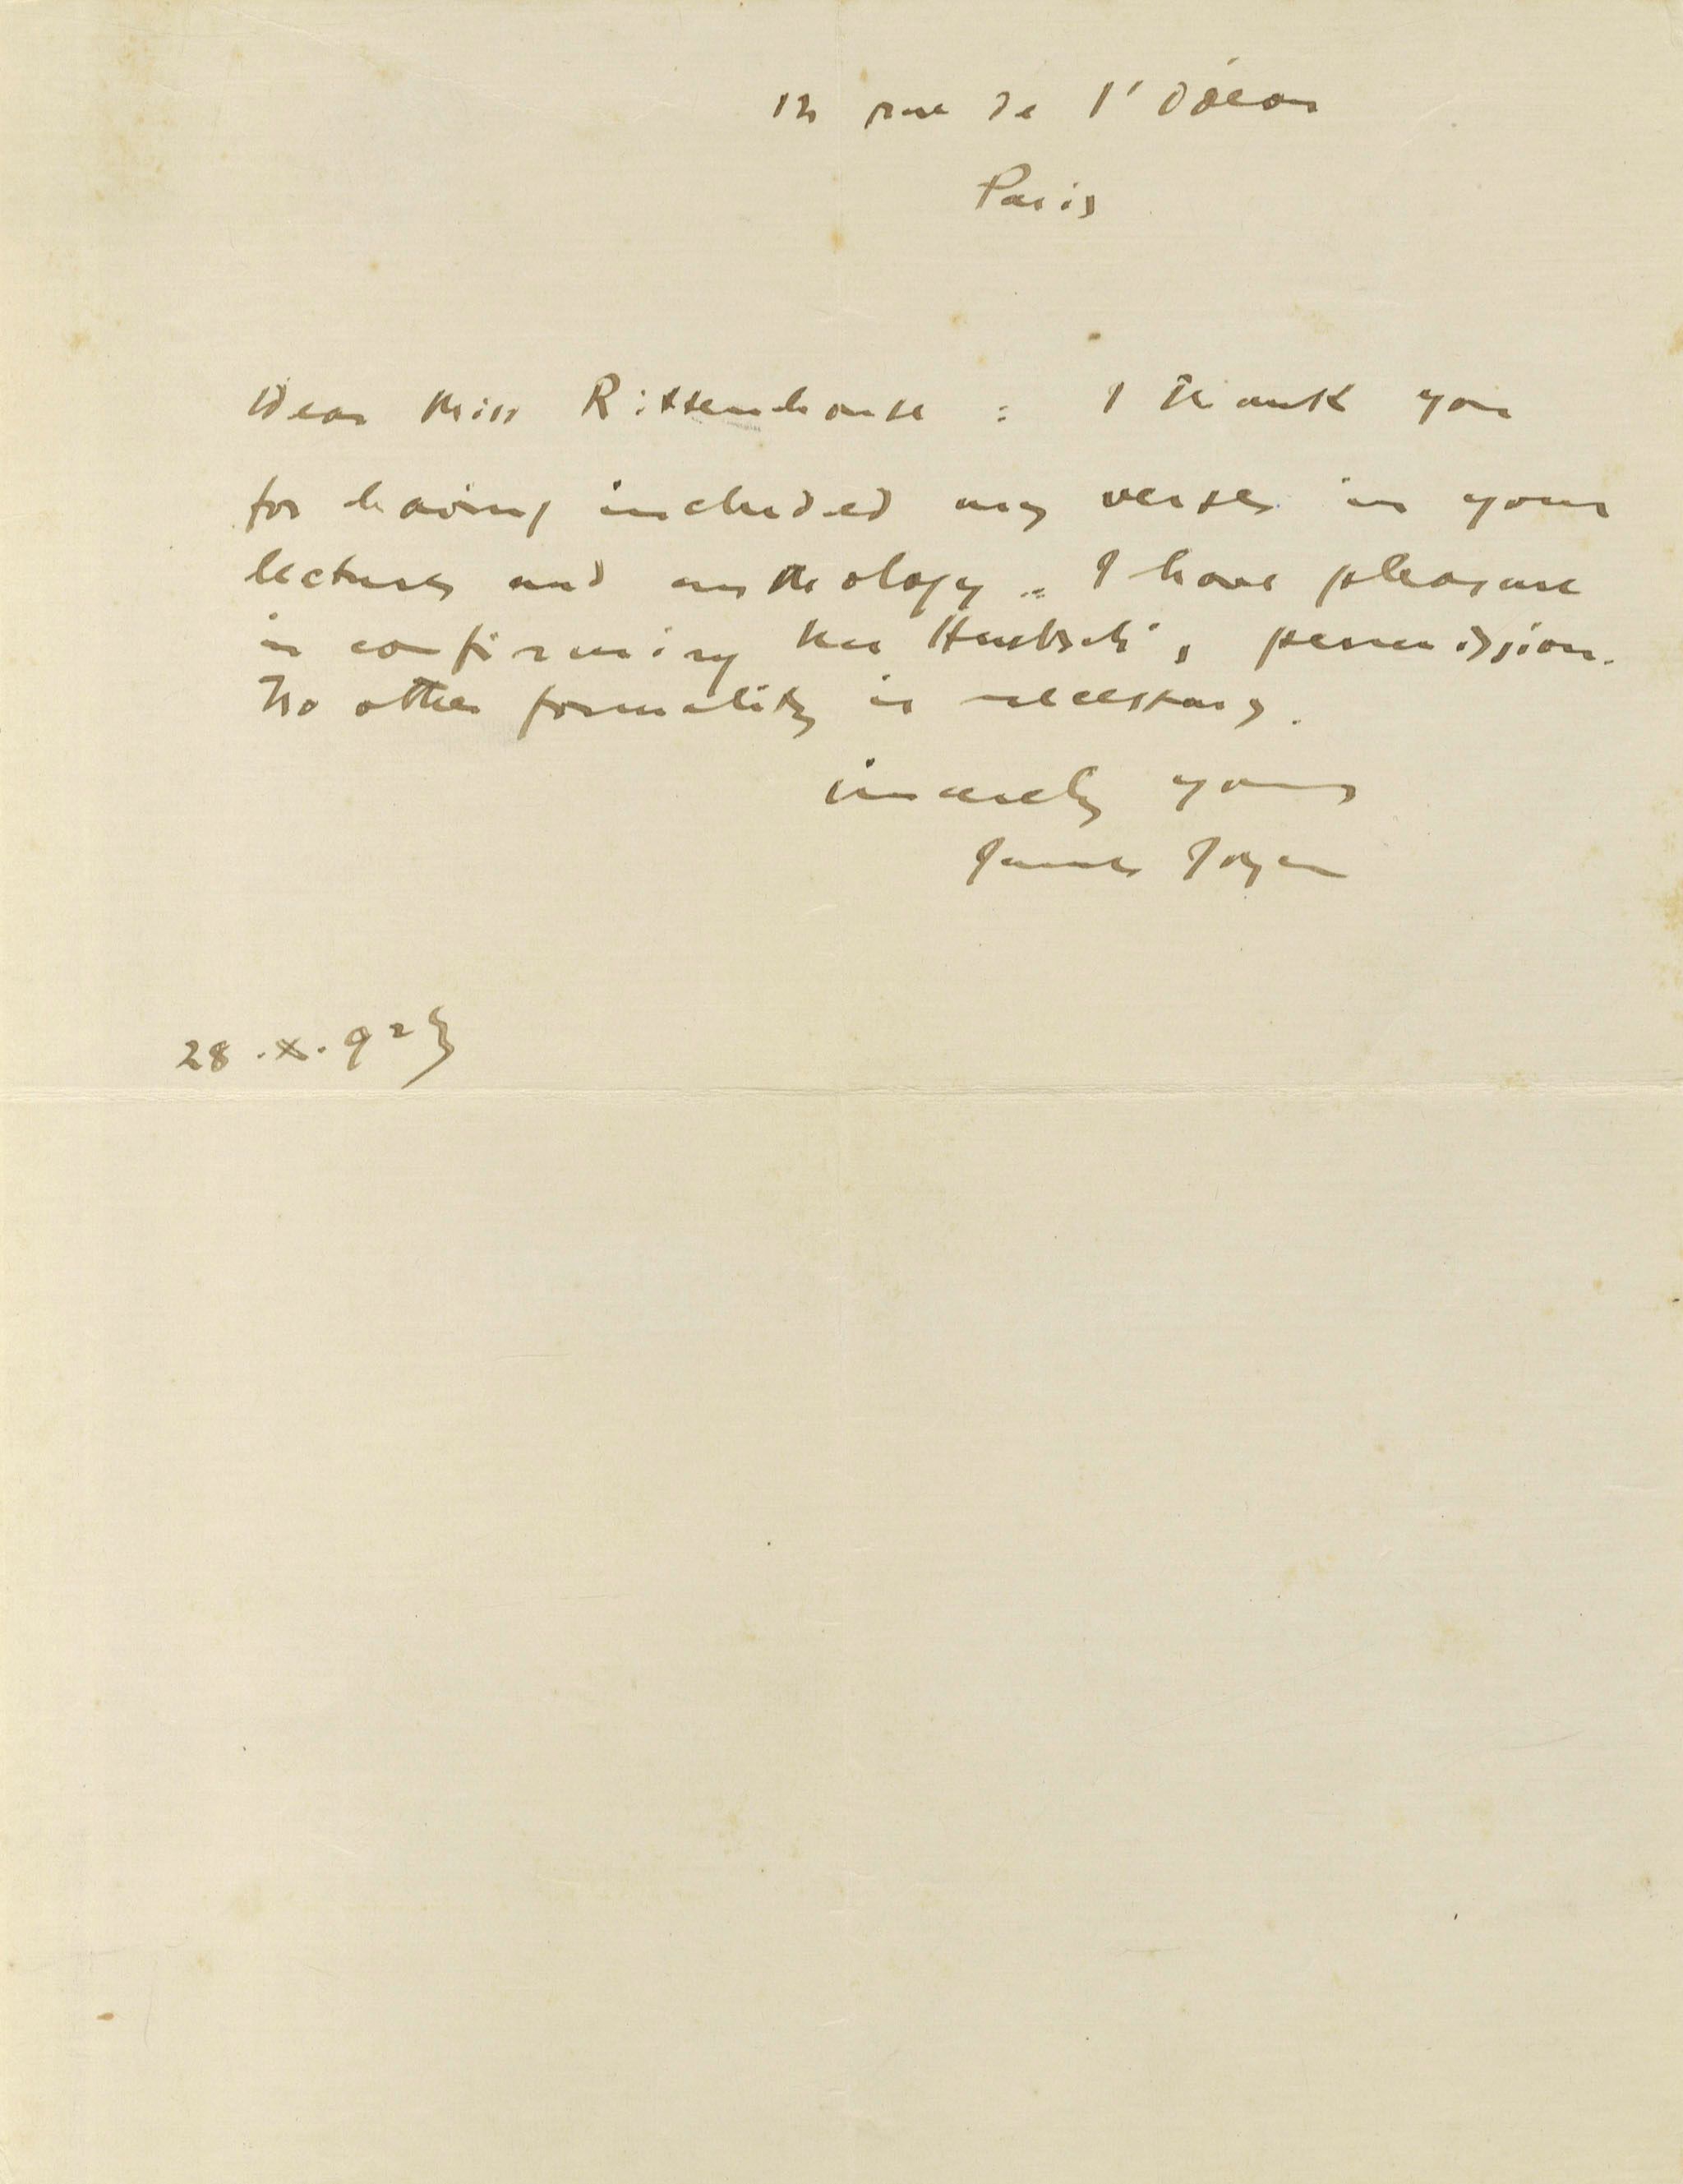 12 rue de l'Odéon
Paris
Dear Miss Rittenhouse : I thank you
for having included my verses in your
lectures and anthology. I have pleasure
in confirming Mr Huebsch's permission.
No other formality is necessary.
sincerely yours
James Joyce
28.X.923